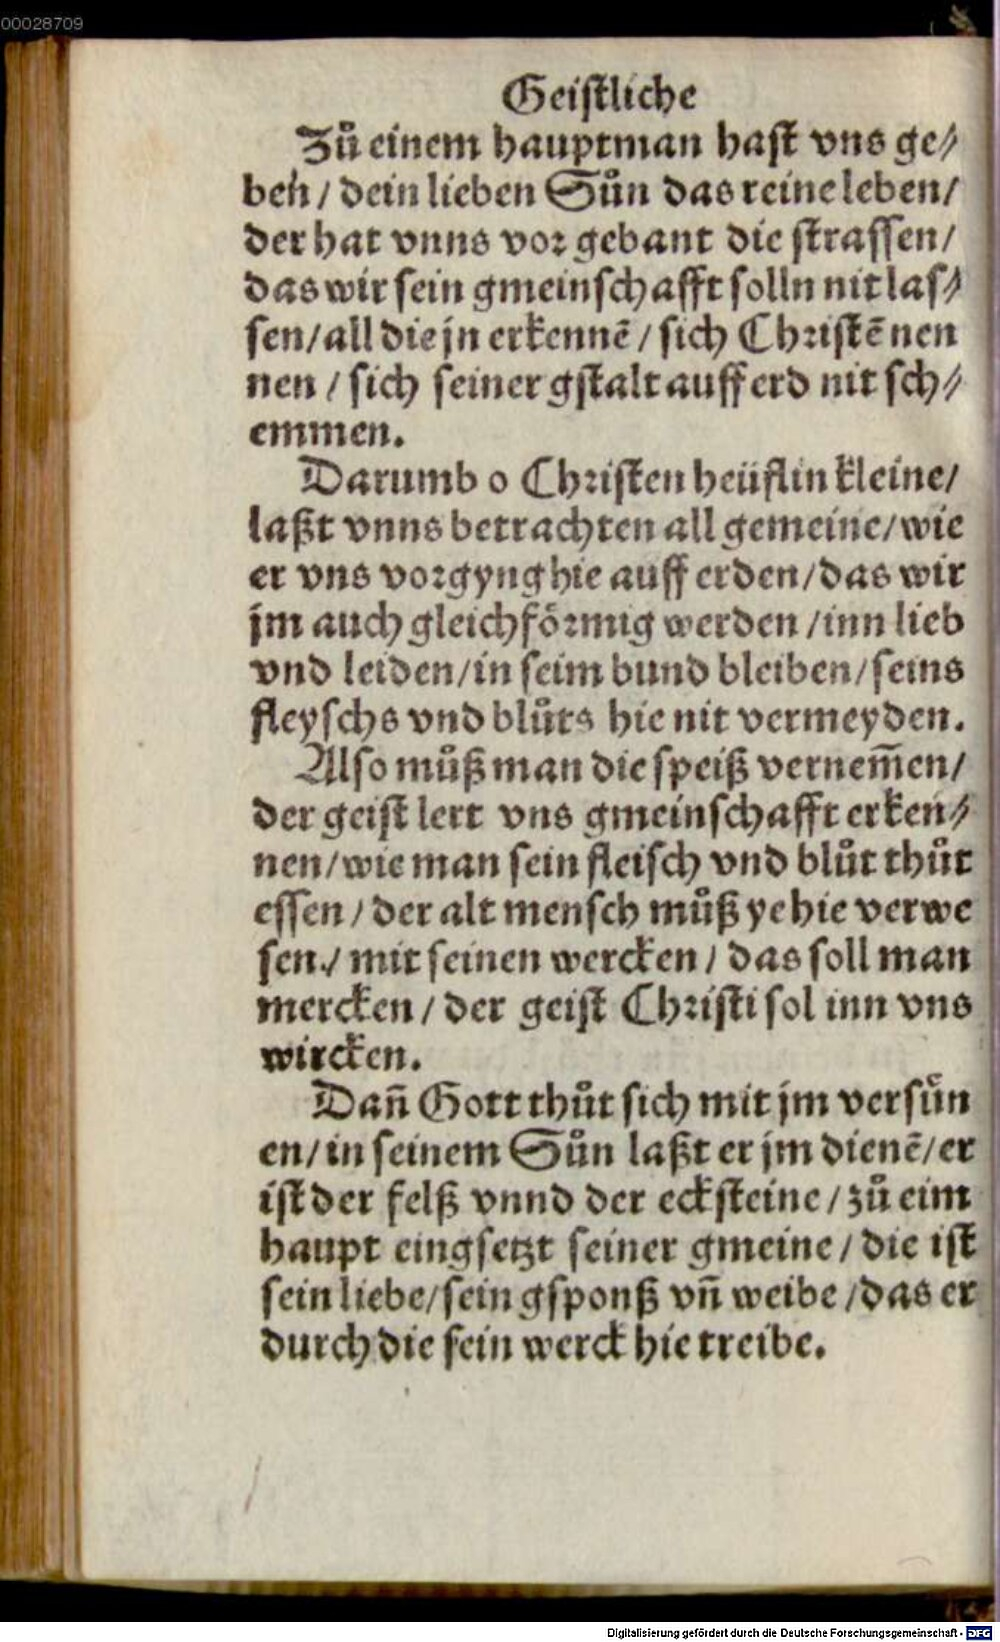 00028709
Geistliche
Zů einem hauptman hast vns ge⸗
ben / dein lieben Sůn das reine leben /
der hat vnns vor gebant die strassen /
das wir sein gmeinschafft solln nit las⸗
sen / all die jn erkennē / sich Christē nen
nen / sich seiner gstalt auff erd nit sch⸗
emmen.
Darumb o Christen heüflin kleine /
laßt vnns betrachten all gemeine / wie
er vns vorgyng hie auff erden / das wir
jm auch gleichförmig werden / inn lieb
vnd leiden / in seim bund bleiben / seins
fleyschs vnd blůts hie nit vermeyden.
Also můß man die speiß vernem̃en /
der geist lert vns gmeinschafft erken⸗
nen / wie man sein fleisch vnd blůt thůt
essen / der alt mensch můß ye hie verwe
sen / mit seinen wercken / das soll man
mercken / der geist Christi sol inn vns
wircken.
Dan̄ Gott thůt sich mit jm versůn
en / in seinem Sůn laßt er jm dienē / er
ist der felß vnnd der ecksteine / zů eim
haupt eingsetzt seiner gmeine / die ist
sein liebe / sein gsponß vn̄ weibe / das er
durch die sein werck hie treibe.
Digitalisierung gefördert durch die Deutsche Forschungsgemeinschaft - DFG